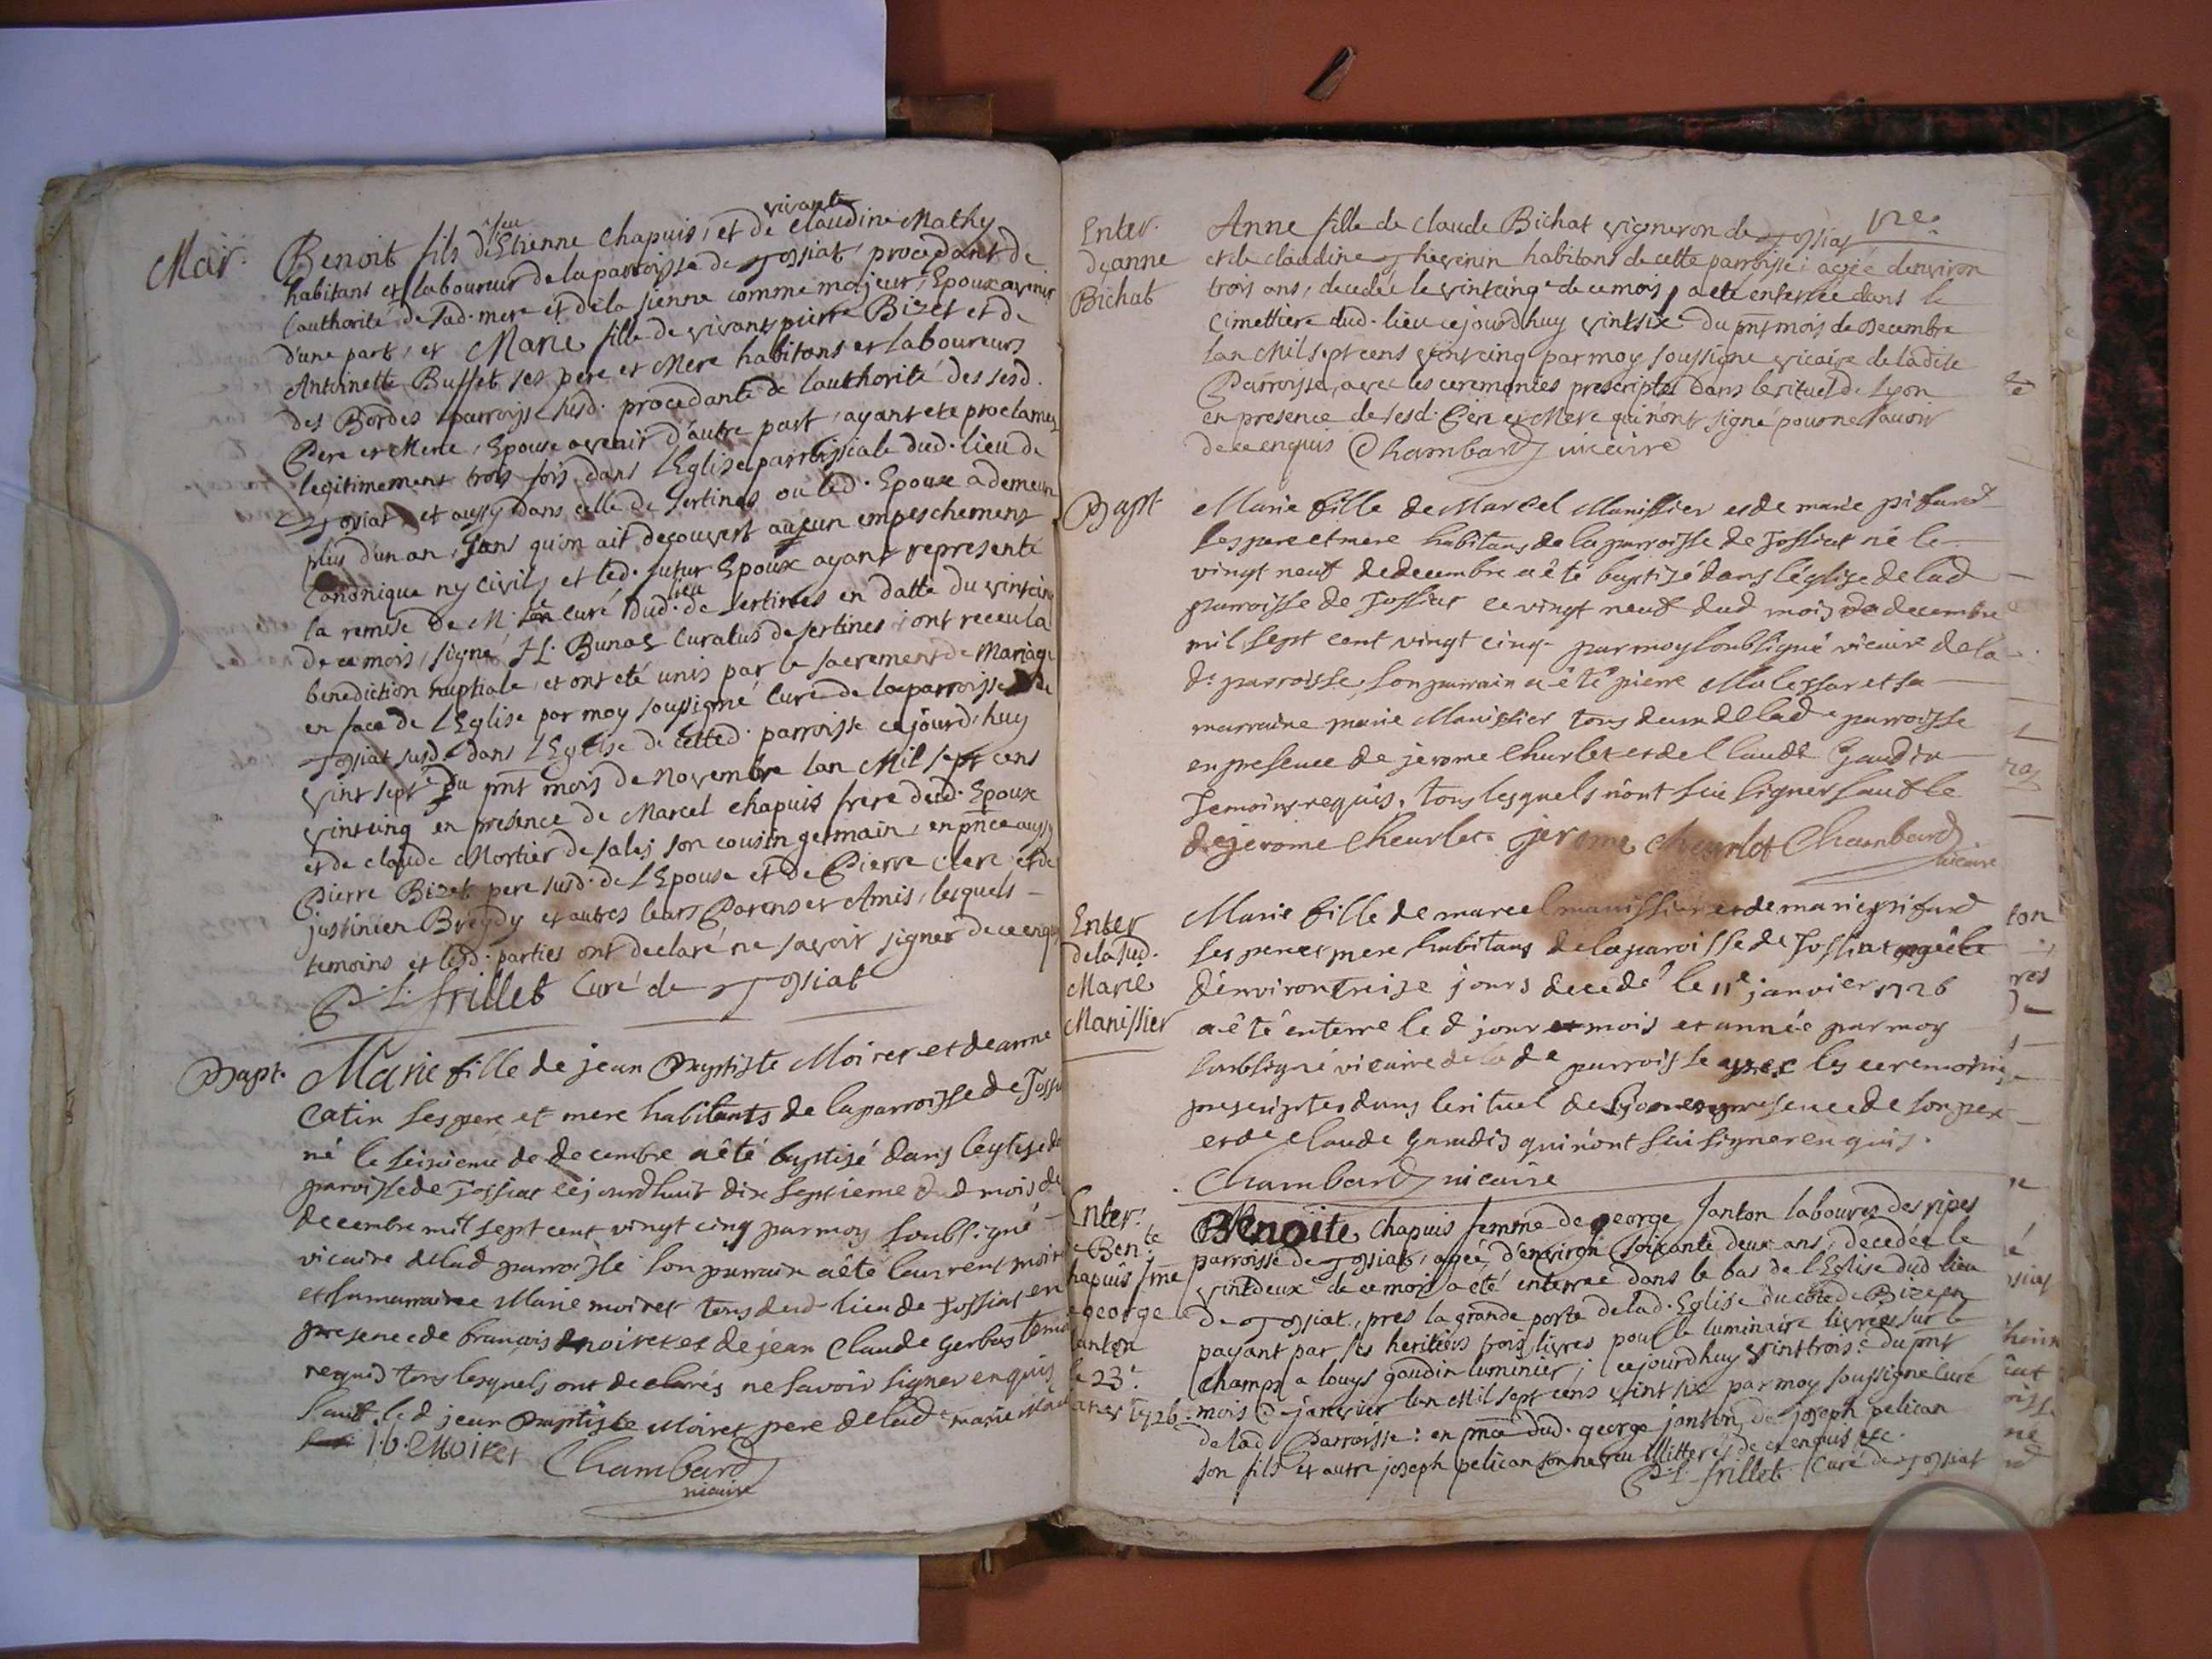 Mar.
Benoit fils d'feu Etienne Chapuis, et de vivante Claudine Mathy
habitans et laboureur de la parroisse de Tossiat, procedant de
l'authorité de sad. mere et de la sienne comme majeur, Epoux avenir
d'une part, et Marie fille de vivans pierre Bizet et de
Antoinette Buffet ses pere et Mere habitans et laboureurs
des Bordes parroisse susd. procedante de l'authorité des sesd.
Pere et Mere, Epouse avenir d'autre part, ayant ete proclames
legitimement trois fois dans l'Eglise parroissiale dud. lieu de
Tossiat, et aussy dans celle de Sertines ou led. Epoux a demeuré
plus d'un an, sans qu'on ait decouvert aucun empeschement
Canonique ny civil, et led. futur Epoux ayant representé
la remise de Mr. le curé dud. lieu de Sertines en datte du vintcinq
de ce mois, signé Bunas Curatus de Sertines, ont receu la
benediction nuptiale, et ont eté unis par le sacrement de Mariage
en face de l'Eglise par moy soussigné Curé de la parroisse de
Tossiat susd. dans l'Eglise de cetted. parroisse cejourd'huy
vint septe du pnt mois de Novembre lan Mil sept cens
vintcinq en presence de Marcel Chapuis frere dud. Epoux
et de Claude Mortier de Sales son cousin germain, en pnce aussy
Pierre Bizet pere susd. de l'Epouse et de Pierre Clerc et de
justinien Bregdy et autres leurs Parens et Amis, lesquels
temoins et lesd. parties ont declaré ne savoir signer de ce enquis
P. L. frillet Curé de Tossiat
Bapt.
Marie fille de jean Baptiste Moiret et deanne
Catin ses pere et mere habitants de la parroisse de Tossiat
né le seizieme de decembre aété baptisé dans leglise de
parroisse de Tossiat cejourdhuit dix septieme dud mois de
decembre mil sept cent vingt cinq par moy soubsigné
vicaire delad parroisse son parrain aété laurent moiret
et sa marraine Marie moiret tous dud lieu de Tossiat en
presence de francois moiret et de jean Claude Gerbas temoins
requis tous lesquels ont declarés ne savoir signer enquis
sauf led jean Baptiste Moiret pere delade marie
J. b. Moiret Chambard
vicaire
Enter.
deanne
Bichat
Anne fille de Claude Bichat vigneron de Tossiat
et de Claudine Thevenin habitans de cette parroisse; agée denviron
trois ans, decedée le vintcinqe de ce mois, a eté enterrée dans le
Cimettiere dud. lieu cejourdhuy vintsixe du pnt mois de Decembre
lan Mil sept cens vintcinq par moy soussigné vicaire de ladite
Parroisse, avec les ceremonies prescriptes dans le rituel de Lyon
en presence de sesd. Pere et Mere qui n'ont signé pour ne savoir
de ce enquis Chambard vicaire
Bapt
Marie fille de Marcel Manissier et de marie pifard
ses pere et mere habitans de la parroisse de Tossiat né le
vingt neuf de decembre a été baptisé dans l'église de lad
parroisse de Tossiat ce vingt neuf dud mois de decembre
mil sept cent vingt cinq par moy soubsigné vicaire de la
de parroisse, son parrain a été pierre et sa
marraine marie Manissier tous deux delade parroisse
en presence de jerome Cheurlet et de Claude Gaudin
Temoins requis, tous lesquels n'ont sçu signer sauf le
de jerome Cheurlet. jerome cheurlot Chambard
vicaire
Enter
de lasud.
Marie
Manissier
Marie fille de marcel manissier et de marie pifard
ses pere et mere habitans de la paroisse de Tossiat agée
d'environ treize jours decedé le 11e janvier 1726
a été enterré led jour et mois et année par moy
soubsigné vicaire de la de parroisse avec les ceremonies
prescriptes dans le rituel de Lyon en presence de son pere
et de Claude Gaudin qui n'ont sçu signer enquis.
Chambard vicaire
Enter.
Ben.te
hapuis fme
george
anton
le 23e
anv. 1726.
Benoite Chapuis femme de george Janton laboureur des ripes
parroisse de Tossiat, agée d'environ soixante deux ans, decedée le
vintdeuxe de ce mois a eté enterrée dans le bas de l'Eglise dud lieu
de Tossiat, pres la grande porte delad. Eglise du coté de Bize en
payant par ses heritiers trois livres pour le luminaire livrées sur le
champ a louys gaudin luminier; cejourdhuy vinttroise du pnt
mois de janvier lan Mil sept cens vint six par moy soussigné Curé
delad Parroisse: en pnce dud. george janton, de joseph pelican
son fils et autre joseph pelican son neveu illitterés de ce enquis etc.
P. L. frillet Curé de Tossiat